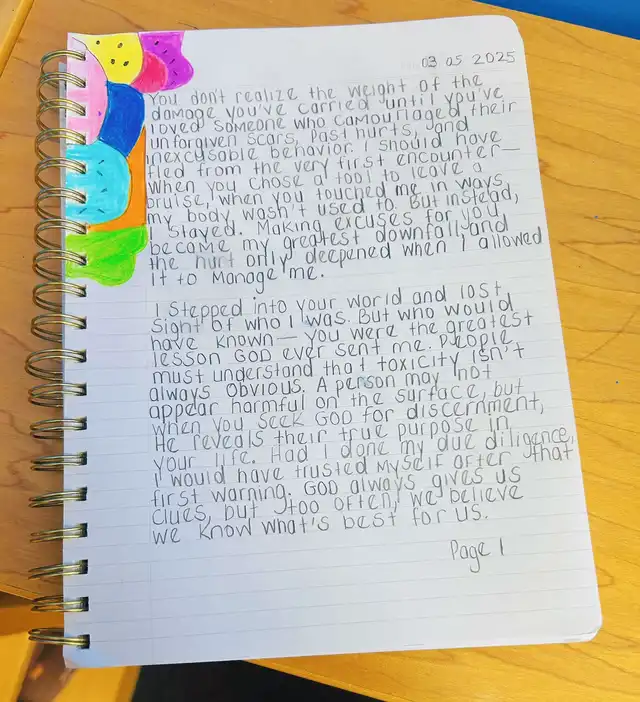 03 05 2025
You don't realize the weight of the
damage you've carried until you've
loved someone who camouflaged their
unforgiven scars, past hurts, and
inexcusable behavior. I should have
fled from the very first encounter—
when you chose a tool to leave a
bruise, when you touched me in ways
my body wasn't used to. But instead,
I stayed. Making excuses for you
became my greatest downfall, and
the hurt only deepened when I allowed
it to manage me.
I stepped into your world and lost
sight of who I was. But who would
have known— you were the greatest
lesson GOD ever sent me. People
must understand that toxicity isn't
always obvious. A person may not
appear harmful on the surface, but
when you seek GOD for discernment,
He reveals their true purpose in
your life. Had I done my due diligence,
I would have trusted myself after that
first warning. GOD always gives us
clues, but too often, we believe
we know what's best for us.
Page 1